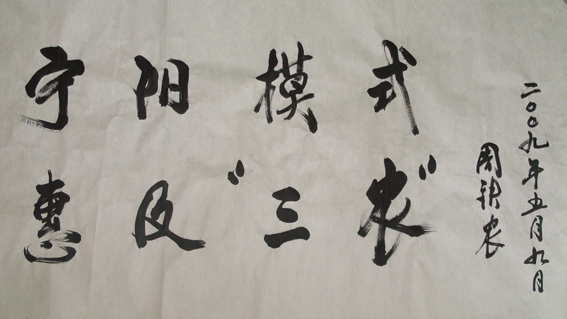 宁阳模式
惠及“三农”
二〇〇九年五月九日
周铁农